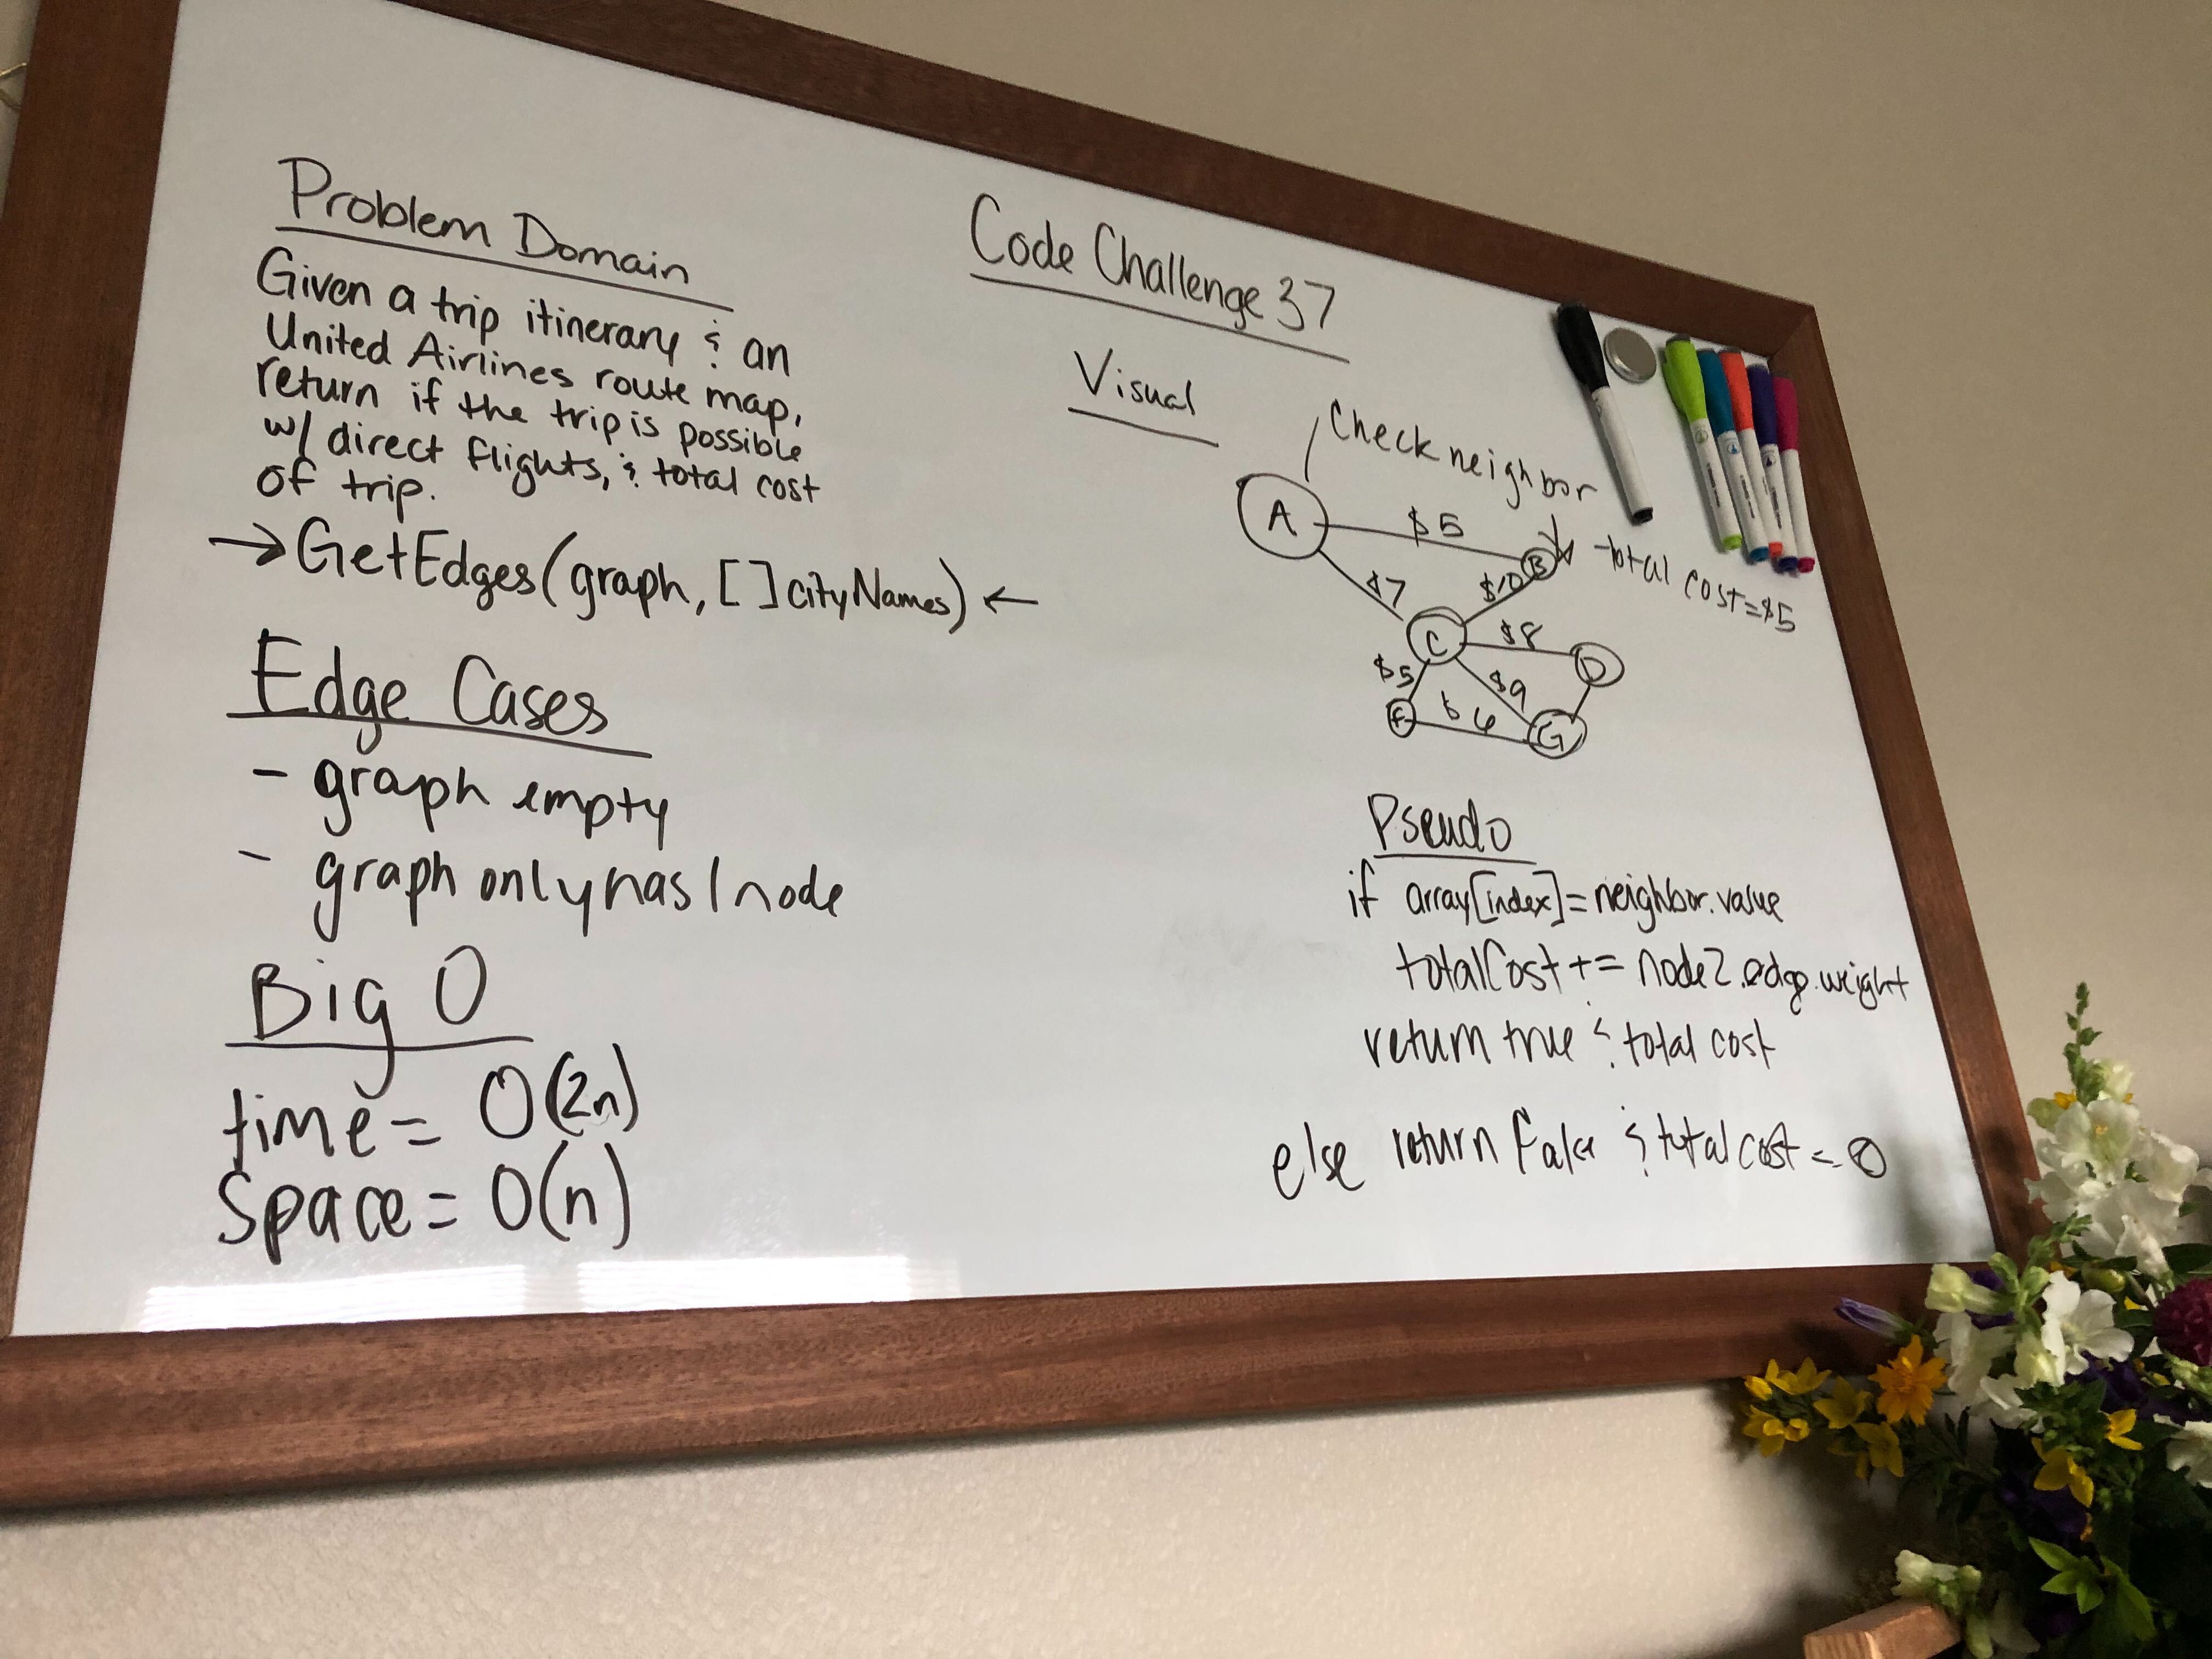 Problem Domain
Given a trip itinerary & an
United Airlines route map,
return if the trip is possible
w/ direct flights, & total cost
of trip.
→ GetEdges(graph, [] cityNames) ←
Edge Cases
- graph empty
- graph only has 1 node
Big O
time = O(2n)
Space = O(n)
Code Challenge 37
Visual
Check neighbor
A
$5
B
total cost = $5
$7
$10
C
$8
D
$5
$9
$6
G
Pseudo
if array[index] = neighbor.value
totalCost += node2.edge.weight
return true & total cost
else return false & total cost = 0